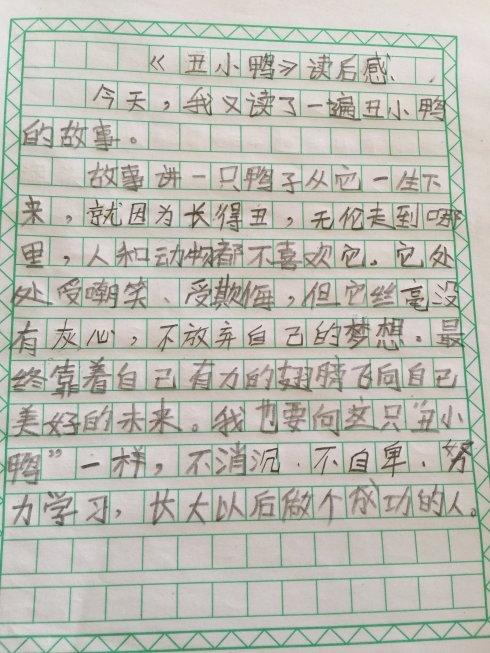 《丑小鸭》读后感
今天，我又读了一遍丑小鸭
的故事。
故事讲一只鸭子从它一生下
来，就因为长得丑，无论走到哪
里，人和动物都不喜欢它。它处
处受嘲笑、受欺侮，但它丝毫没
有灰心，不放弃自己的梦想。最
终靠着自己有力的翅膀飞向自己
美好的未来。我也要向这只“丑小
鸭”一样，不消沉、不自卑、努
力学习，长大以后做个成功的人。